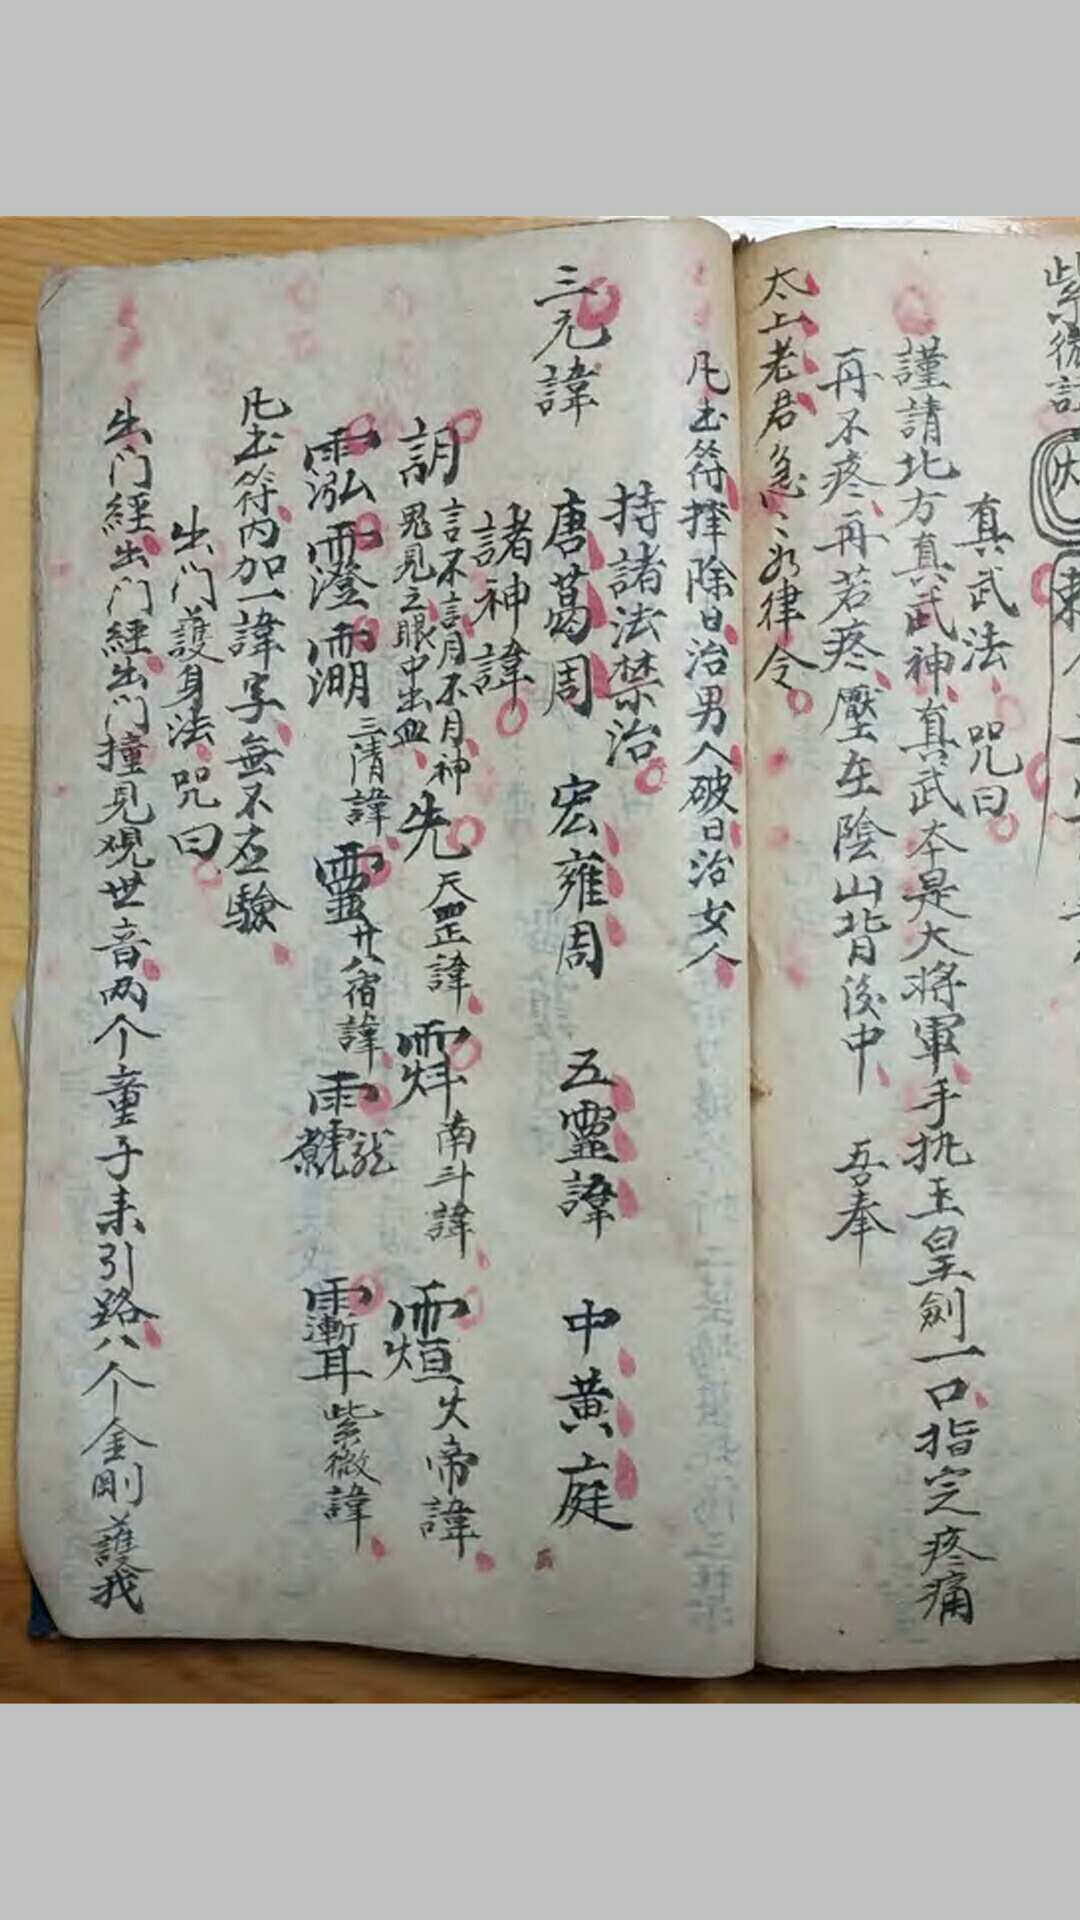 紫微諱
真武法 咒曰
謹請北方真武神真武本是大将軍手执玉皇劍一口指定疼痛
再不疼再若疼壓在陰山背後中 吾奉
太上老君急〻如律令
凡书符择除日治男人破日治女人
持諸法禁治
三元諱 唐葛周 宏雍周 五靈諱 中黄庭
諸神諱
言不言月不月神
鬼見之眼中出血
先 天罡諱 南斗諱 火帝諱
三清諱 廿八宿諱 紫微諱
凡书符内加一諱字無不应驗
出门護身法咒曰
出门經出门經出门撞見观世音两个童子来引路八个金剛護我